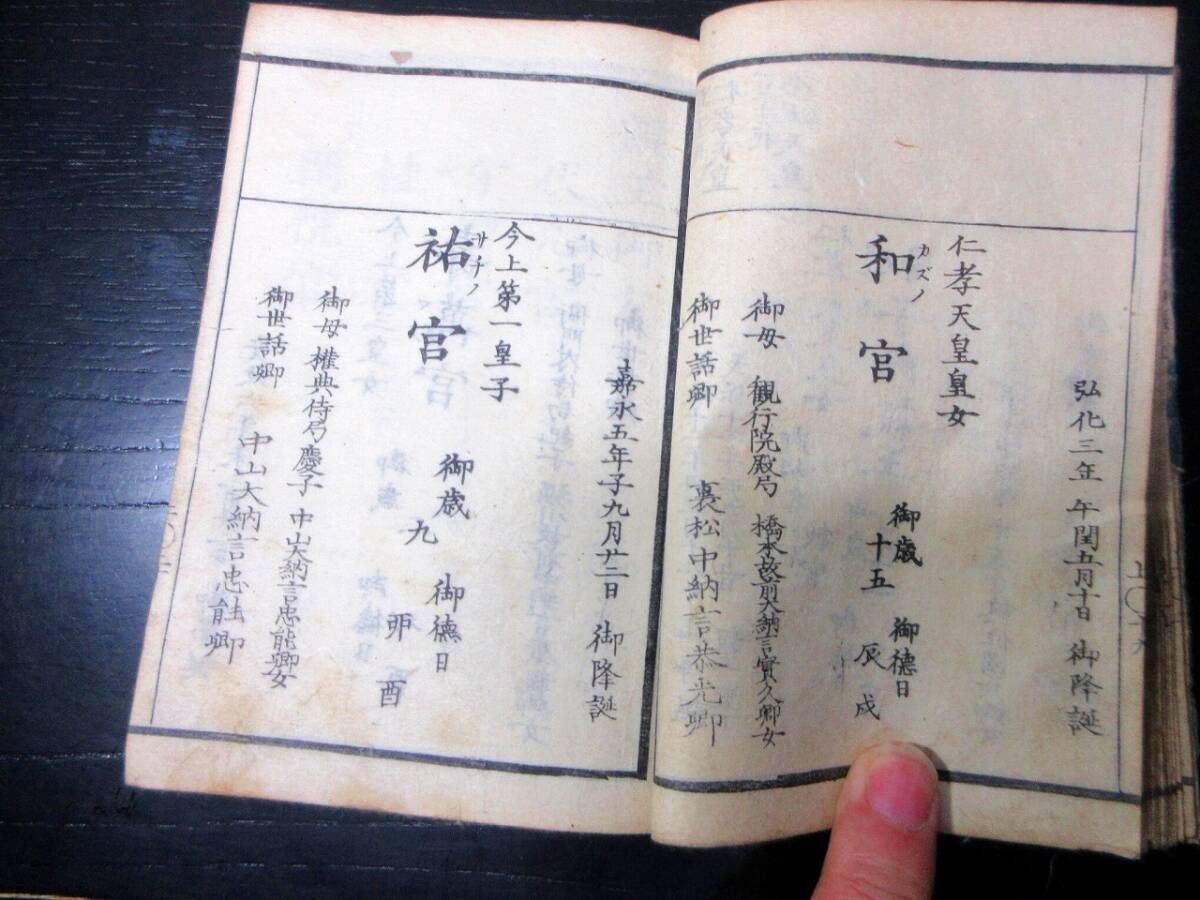 弘化三年 午閏五月十日 御降誕
仁孝天皇皇女
和宮
カズノ
御歳 十五
御徳日 辰 戌
御母 観行院殿局 橋本故前大納言實久卿女
御世話卿 裏松中納言恭光卿
嘉永五年子九月廿二日 御降誕
今上第一皇子
祐宮
サチノ
御歳 九
御徳日 卯 酉
御母 權典侍局慶子 中山大納言忠能卿女
御世話卿 中山大納言忠能卿